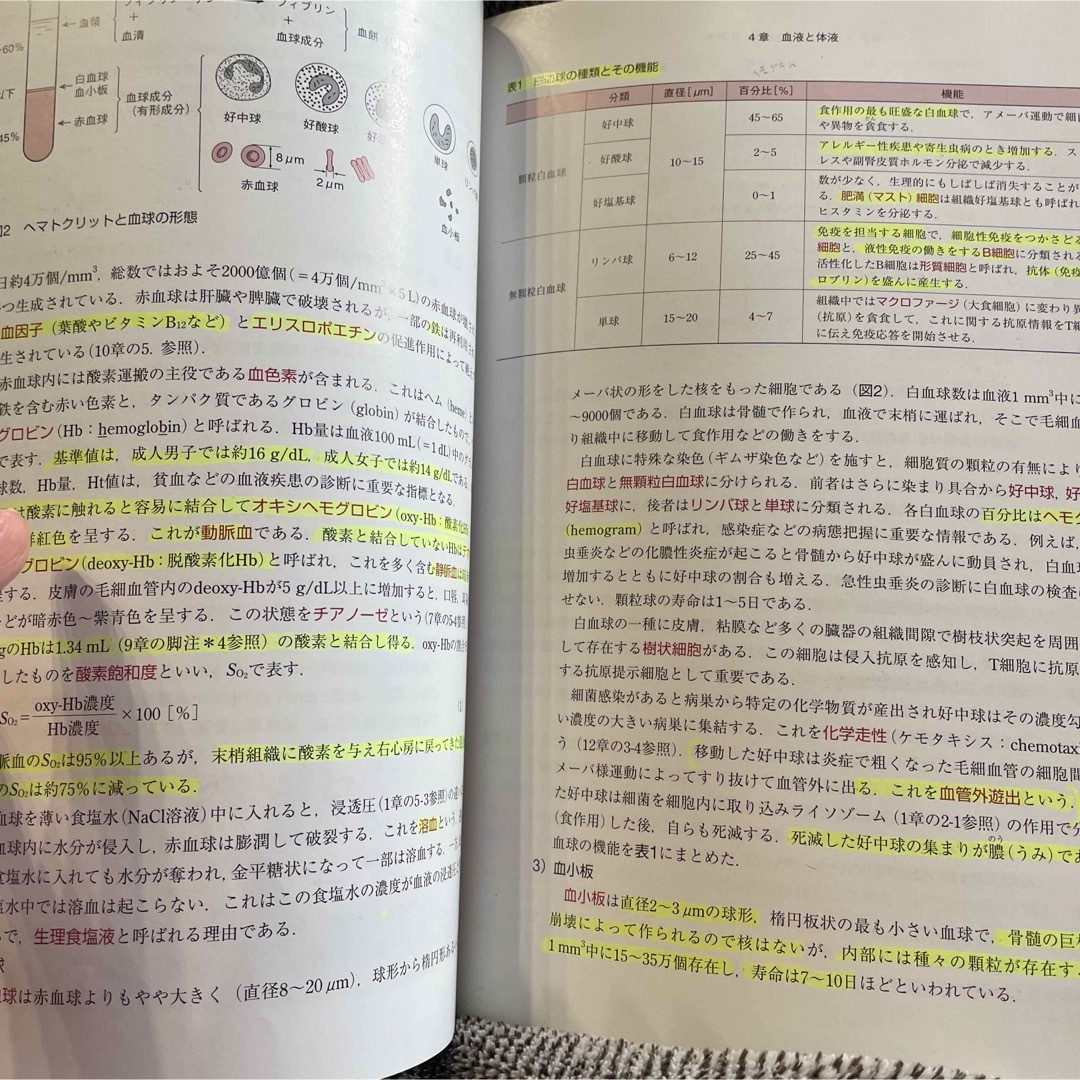 血漿
+
血清
フィブリン
+
血球成分
血餅
~60%
以下
45%
白血球
血小板
赤血球
血球成分
(有形成分)
好中球
好酸球
単球
8μm
2μm
赤血球
血小板
図2 ヘマトクリットと血球の形態
日約4万個/mm³,総数ではおよそ2000億個(=4万個/mm³×5L)の赤血球が
つ生成されている.赤血球は肝臓や脾臓で破壊されるが,一部の鉄は再利用
血因子(葉酸やビタミンB₁₂など)とエリスロポエチンの促進作用によって
生されている(10章の5.参照).
赤血球内には酸素運搬の主役である血色素が含まれる.これはヘム(heme)と
鉄を含む赤い色素と,タンパク質であるグロビン(globin)が結合したもので,
グロビン(Hb:hemoglobin)と呼ばれる.Hb量は血液100 mL(=1 dL)中の
で表す.基準値は,成人男子では約16 g/dL,成人女子では約14 g/dLである.
球数,Hb量,Ht値は,貧血などの血液疾患の診断に重要な指標となる.
は酸素に触れると容易に結合してオキシヘモグロビン(oxy-Hb:酸素化
鮮紅色を呈する.これが動脈血である.酸素と結合していないHbは
グロビン(deoxy-Hb:脱酸素化Hb)と呼ばれ,これを多く含む静脈血は
する.皮膚の毛細血管内のdeoxy-Hbが5 g/dL以上に増加すると,口唇,
どが暗赤色~紫青色を呈する.この状態をチアノーゼという(7章の5-4参照
gのHbは1.34 mL(9章の脚注*4参照)の酸素と結合し得る.oxy-Hbの
したものを酸素飽和度といい,So₂で表す.
So₂=oxy-Hb濃度/Hb濃度×100[%]
脈血のSo₂は95%以上あるが,末梢組織に酸素を与え右心房に戻ってきた
のSo₂は約75%に減っている.
血球を薄い食塩水(NaCl溶液)中に入れると,浸透圧(1章の5-3参照)の
血球内に水分が侵入し,赤血球は膨潤して破裂する.これを溶血という.
食塩水に入れても水分が奪われ,金平糖状になって一部は溶血する.
塩水中では溶血は起こらない.これはこの食塩水の濃度が血液の浸透圧
で,生理食塩液と呼ばれる理由である.
球
血球は赤血球よりもやや大きく(直径8~20 μm),球形から楕円形
4章 血液と体液
表1 白血球の種類とその機能
分類 直径[μm] 百分比[%] 機能
顆粒白血球 好中球 10~15 45~65 食作用の最も旺盛な白血球で,アメーバ運動で細
や異物を貪食する.
好酸球 2~5 アレルギー性疾患や寄生虫病のとき増加する.ス
レスや副腎皮質ホルモン分泌で減少する.
好塩基球 0~1 数が少なく,生理的にもしばしば消失することが
る.肥満(マスト)細胞は組織好塩基球とも呼ばれ
ヒスタミンを分泌する.
無顆粒白血球 リンパ球 6~12 25~45 免疫を担当する細胞で,細胞性免疫をつかさどる
細胞と,液性免疫の働きをするB細胞に分類される
活性化したB細胞は形質細胞と呼ばれ,抗体(免疫
ロブリン)を盛んに産生する.
単球 15~20 4~7 組織中ではマクロファージ(大食細胞)に変わり異
(抗原)を貪食して,これに関する抗原情報をT細
に伝え免疫応答を開始させる.
メーバ状の形をした核をもった細胞である(図2).白血球数は血液1 mm³中に
~9000個である.白血球は骨髄で作られ,血液で末梢に運ばれ,そこで毛細血
り組織中に移動して食作用などの働きをする.
白血球に特殊な染色(ギムザ染色など)を施すと,細胞質の顆粒の有無により
白血球と無顆粒白血球に分けられる.前者はさらに染まり具合から好中球,好
好塩基球に,後者はリンパ球と単球に分類される.各白血球の百分比はヘモグ
(hemogram)と呼ばれ,感染症などの病態把握に重要な情報である.例えば,
虫垂炎などの化膿性炎症が起こると骨髄から好中球が盛んに動員され,白血球
増加するとともに好中球の割合も増える.急性虫垂炎の診断に白血球の検査は
せない.顆粒球の寿命は1~5日である.
白血球の一種に皮膚,粘膜など多くの臓器の組織間隙で樹枝状突起を周囲
して存在する樹状細胞がある.この細胞は侵入抗原を感知し,T細胞に抗原
する抗原提示細胞として重要である.
細菌感染があると病巣から特定の化学物質が産出され好中球はその濃度勾
い濃度の大きい病巣に集結する.これを化学走性(ケモタキシス:chemotax
う(12章の3-4参照).移動した好中球は炎症で粗くなった毛細血管の細胞間
メーバ様運動によってすり抜けて血管外に出る.これを血管外遊出という.
た好中球は細菌を細胞内に取り込みライソゾーム(1章の2-1参照)の作用で分
(食作用)した後,自らも死滅する.死滅した好中球の集まりが膿(うみ)であ
血球の機能を表1にまとめた.
3)血小板
血小板は直径2~3 μmの球形,楕円板状の最も小さい血球で,骨髄の巨核
崩壊によって作られるので核はないが,内部には種々の顆粒が存在する
1 mm³中に15~35万個存在し,寿命は7~10日ほどといわれている.